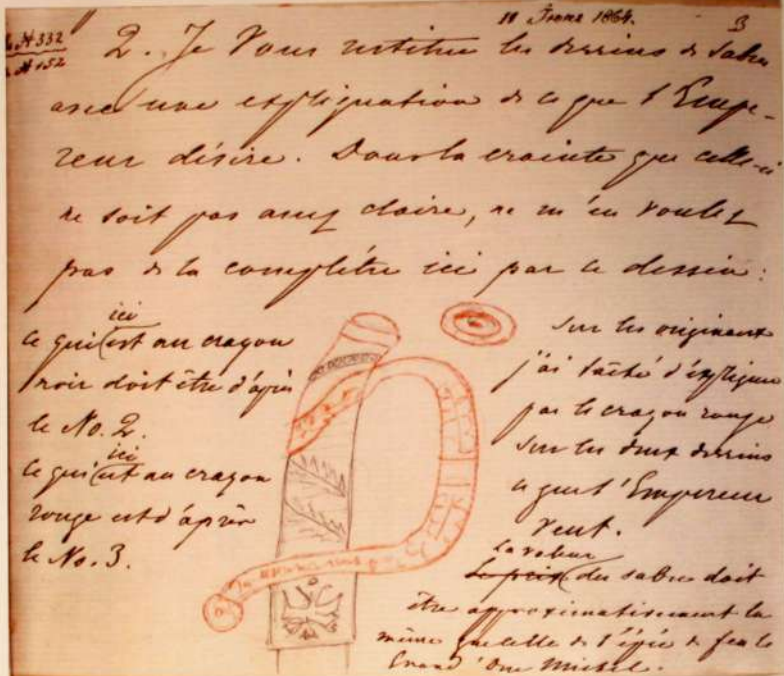 11 1864.
3
№ 332
№ 152
2. Je Vous restitue les dessins de sabre
avec une expliquation de ce que l'Empe-
reur désire. Dans la crainte que celle-ci
ne soit pas assez claire, ne m'en voulez
pas de la complétre ici par ce dessin:
ici
ce qui est au crayon
noir doit être d'après
le No. 2.
ici
ce qui est au crayon
rouge est d'après
le No. 3.
Sur les originaux
j'ai tâché d'expliquer
par le crayon rouge
sur les deux dessins
ce que l'Empereur
veut.
la valeur
Le prix du sabre doit
être approximativement la
même que celle de l'épée de feu le
Grand'Duc Michel.